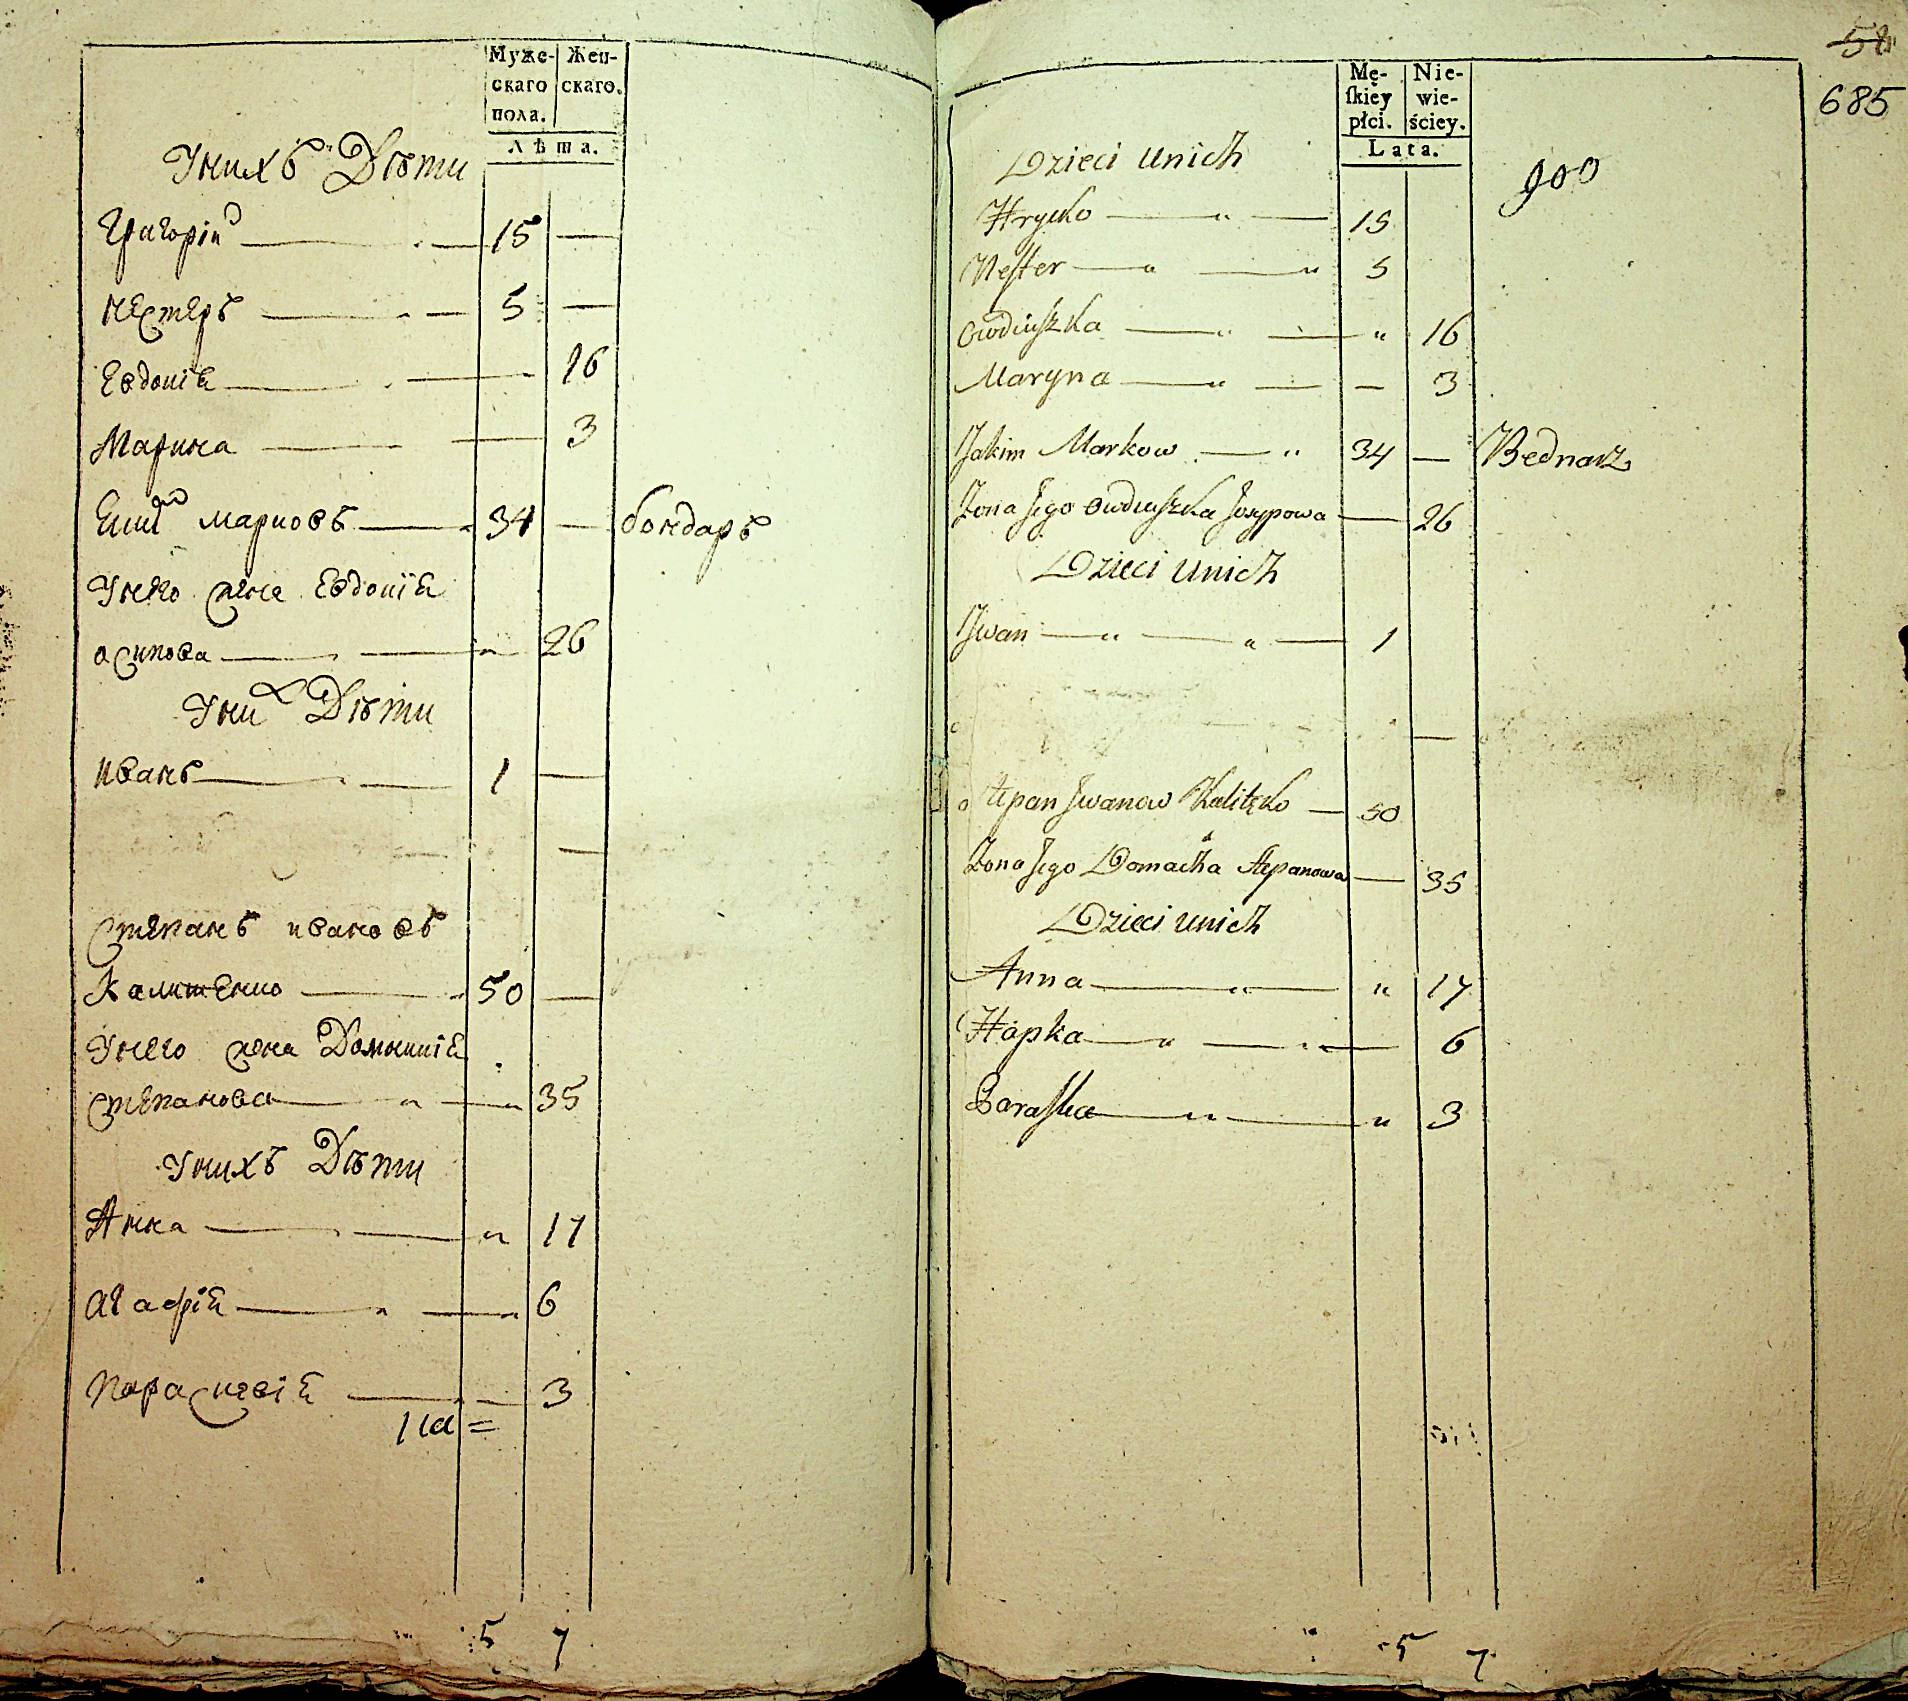 Муже- Жен-
скаго скаго.
пола.
Лѣта.
Унихъ Дѣти
Григорій 15 —
нестеръ — 5 —
Евдокіѧ — 16
Марина — 3
Еким марковъ — 34 — бондаръ
Унего жена Евдокіѧ
осипова — 26
Уних Дѣти
иванъ — 1 —
степанъ ивановъ
Калитенко — 50 —
Унего жена Домникіѧ
степанова — " — 35
Унихъ Дѣти
Анна — " 17
агафіѧ — 6
параскевіѧ — 3
5 7
58
685
Mę- Nie-
ſkiey wie-
płci. ściey.
Lata.
900
Dzieci unich
Hrycko — " — 15
Nester — " — " 5
Owdiuszka — " — " 16
Maryna — " — — 3
Jakim Markow — " 34 — Bednarz
Żona Jego Owdiuszka Josypowa — 26
Dzieci unich
Jwan — " — " — 1
Stepan Jwanow Kalitęko — 50
Żona Jego Domacha Stepanowa — 35
Dzieci unich
Anna — " — " 17
Hapka — " — " — 6
Paraska — " — " 3
5 7